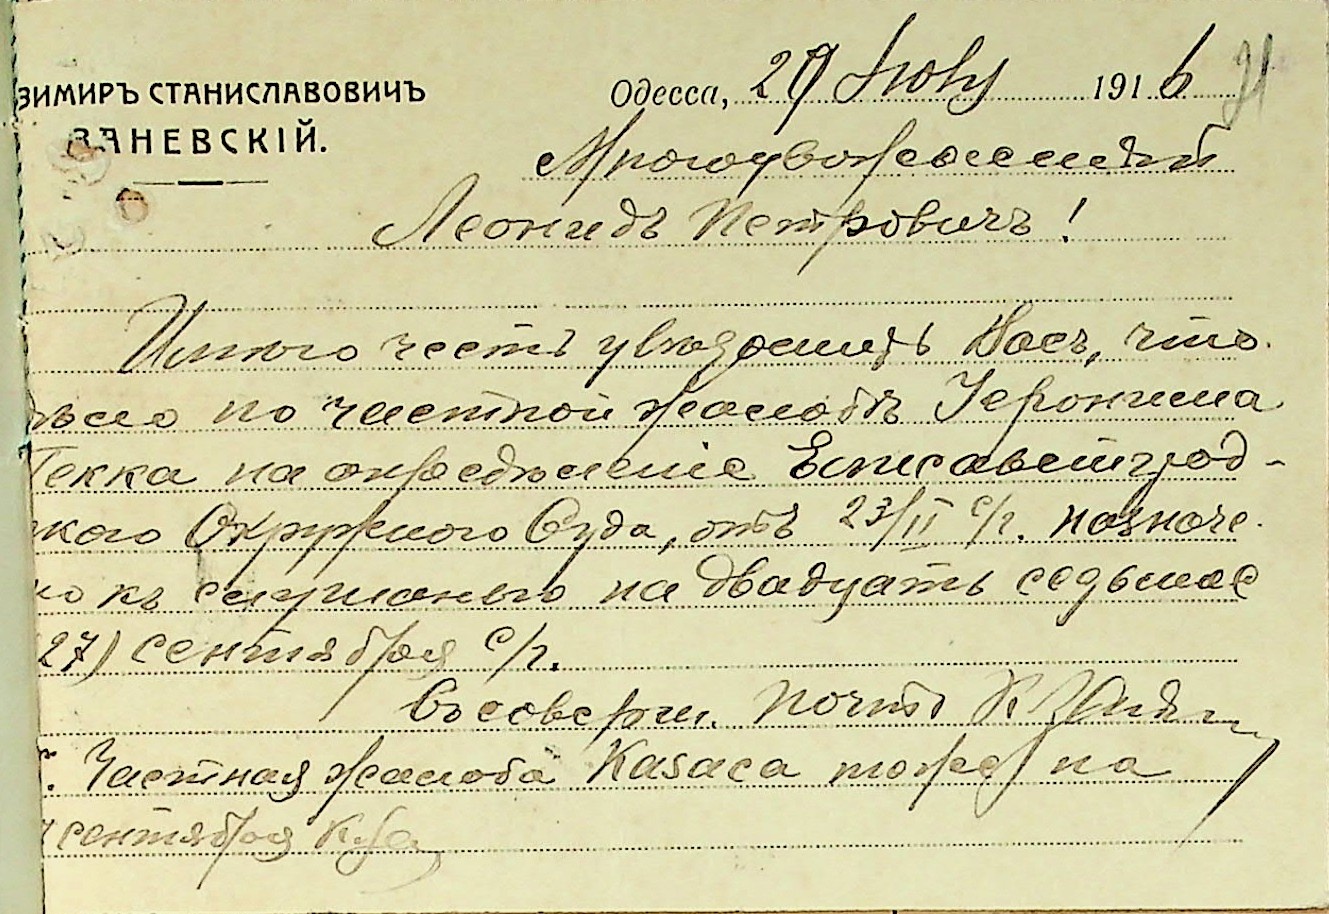 зимиръ Станиславовичъ
Заневскій.
Одесса, 29 Іюля 1916
21
Многоуважаемый
Леонидъ Петровичъ!
Имѣю честь увѣдомить Васъ, что
дѣло по частной жалобѣ Іеронима
Гекка на опредѣленіе Елисаветград-
скаго Окружного Суда, отъ 23/II с/г. назначе-
но къ слушанью на двадцать седьмое
27) сентября с/г.
Съ соверш. почт К Зан
Частная жалоба Казаса тоже на
сентября